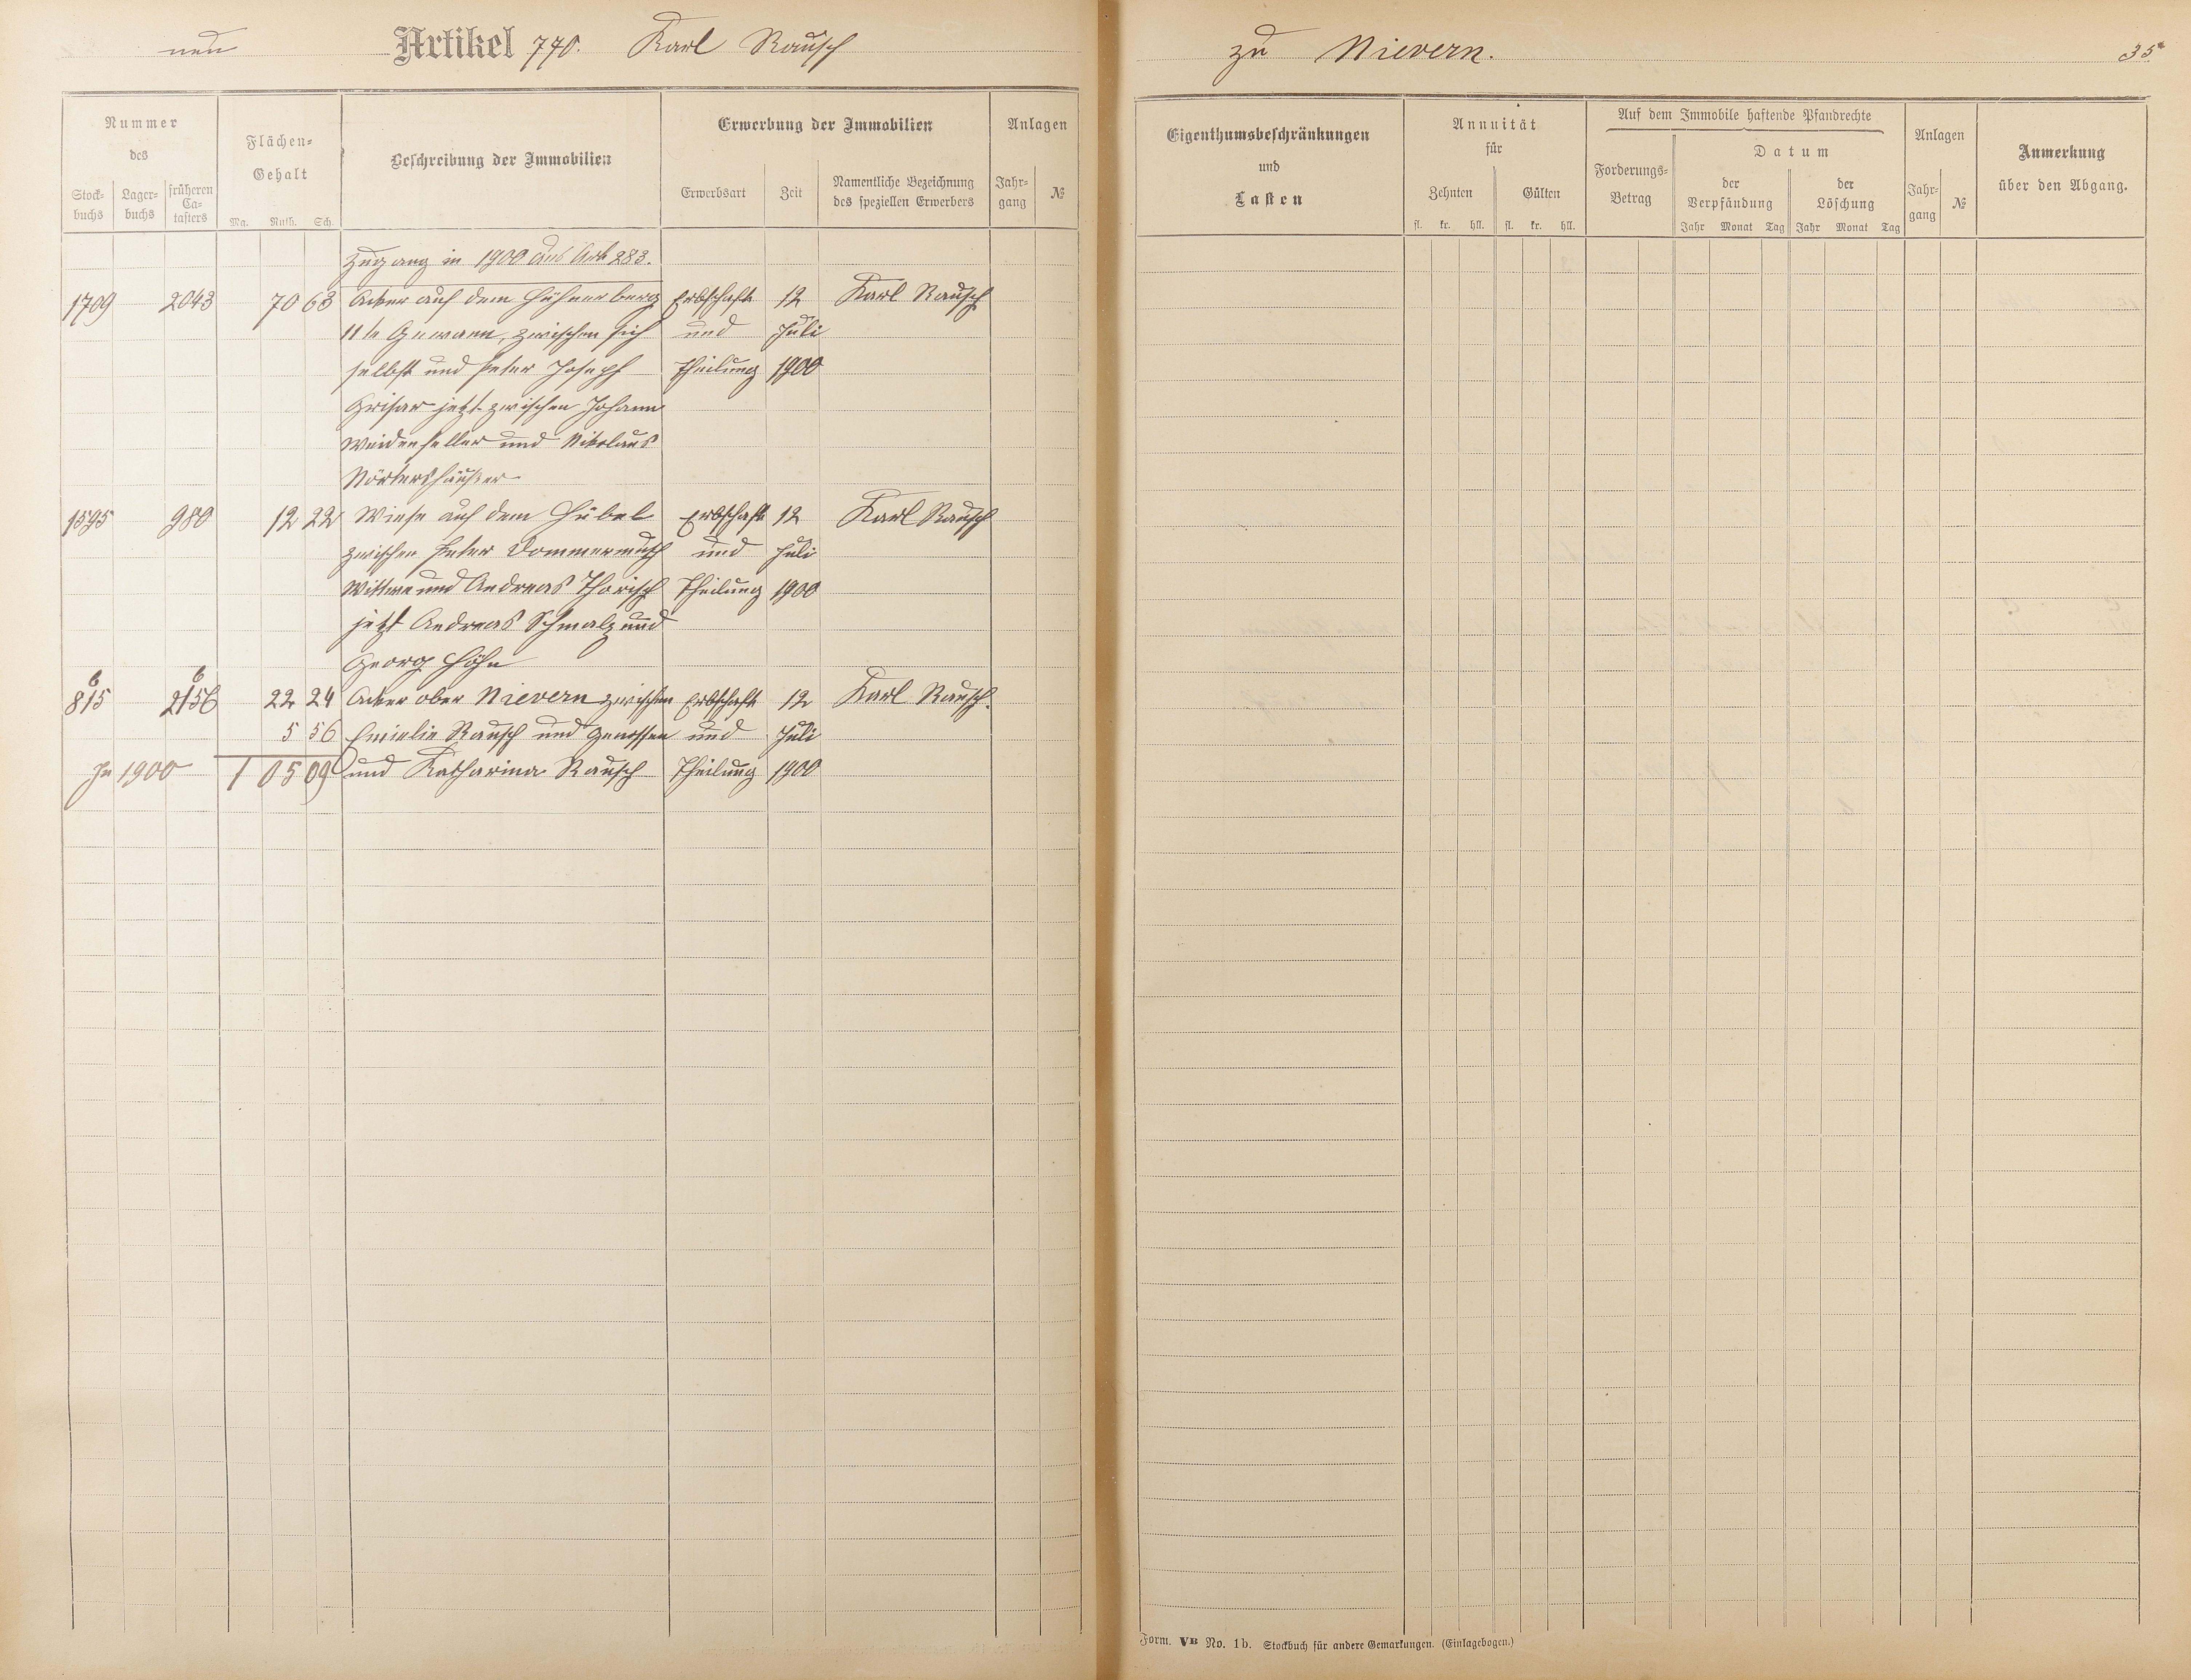 neu Artikel 770. Karl Rausch
zu Nievern. 35
Nummer des
Stock-buchs Lager-buchs früheren Ca-tasters
Flächen-Gehalt
Ma. Ruth. Sch.
Beschreibung der Immobilien
Erwerbung der Immobilien
Erwerbsart Zeit Namentliche Bezeichnung des speziellen Erwerbers
Anlagen
Jahr-gang №
Zugang in 1900 aus Art 283.
1709 2043 70 63 Acker auf dem Hühnerberg Erbschaft 12 Karl Rausch
11te Gewann, zwischen sich und Juli
selbst und Peter Joseph Theilung 1900
Grisar jetzt zwischen Johann
Weidenfeller und Nikolaus
Nörtershäußer
1595 980 12 22 Wiese auf dem Hübel Erbschaft 12 Karl Rausch
zwischen Peter Dommermuth und Juli
Wittwe und Andreas Thorisch Theilung 1900
jetzt Andreas Schmalz und
Georg Höhn
b b
815 2156 22 24 Acker ober Nievern zwischen Erbschaft 12 Karl Rausch.
5 56 Emielie Rausch und Genossen und Juli
In 1900 1 05 09 und Katharina Rausch Theilung 1900
Eigenthumsbeschränkungen
und
Lasten
Annuität
für
Zehnten Gülten
fl. kr. hll. fl. kr. hll.
Auf dem Immobile haftende Pfandrechte
Forderungs-Betrag
Datum
der Verpfändung der Löschung
Jahr Monat Tag Jahr Monat Tag
Anlagen
Jahr-gang №
Anmerkung
über den Abgang.
Form. VB No. 1b. Stockbuch für andere Gemarkungen. (Einlagebogen.)